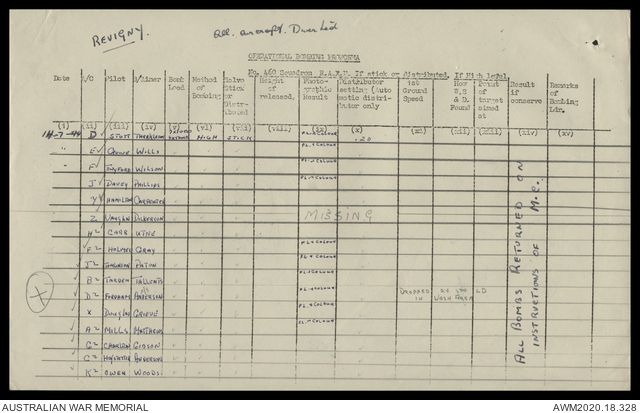 REVIGNY.
All aircraft. Diverted
OPERATIONAL BOMBING PROFORMA
No. 460 Squadron R.A.A.F. If stick or distributed. If High level.
Date A/C Pilot B/Aimer Bomb Load Method of Bombing Salvo Stick or Distributed Height of released. Photographic Result Distributor setting (Automatic distributor only 1st Ground Speed How W.S & D. Found Point of target aimed at Result if conserve Remarks of Bombing Ldr.
(i) (ii) (iii) (iv) (v) (vi) (vii) (viii) (ix) (x) (xi) (xii) (xiii) (xiv) (xv)
14-7-44 D STOTT HIGH STICK FL+COLOUR .20
" E WILLS FL+COLOUR
" F WILSON
J DAVEY PHILLIPS FL+COLOUR
Y HAMILTON CARPENTER
Z VAUGHAN DICKERSON MISSING
H2 CARR WYNE
F2 HOLMES GRAY FL+COLOUR
J2 PATON FL+COLOUR
B2 FL+COLOUR
D2 ANDERSON FL+COLOUR DROPPED IN LD
K DOUGLAS GRIEVE FL+COLOUR
A2 MILLS MATTHEWS FL+COLOUR
G2 GIDSON
C2
K2 OWEN WOODS.
ALL BOMBS RETURNED ON
INSTRUCTIONS OF M.C.
AUSTRALIAN WAR MEMORIAL AWM2020.18.328